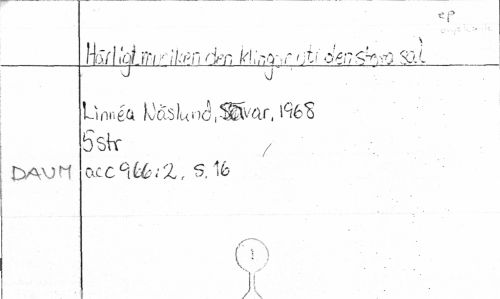 ep
Härligt musiken den klingar uti den stora sal
Linnéa Näslund, Sävar, 1968
5 str
DAUM acc 966:2, s. 16